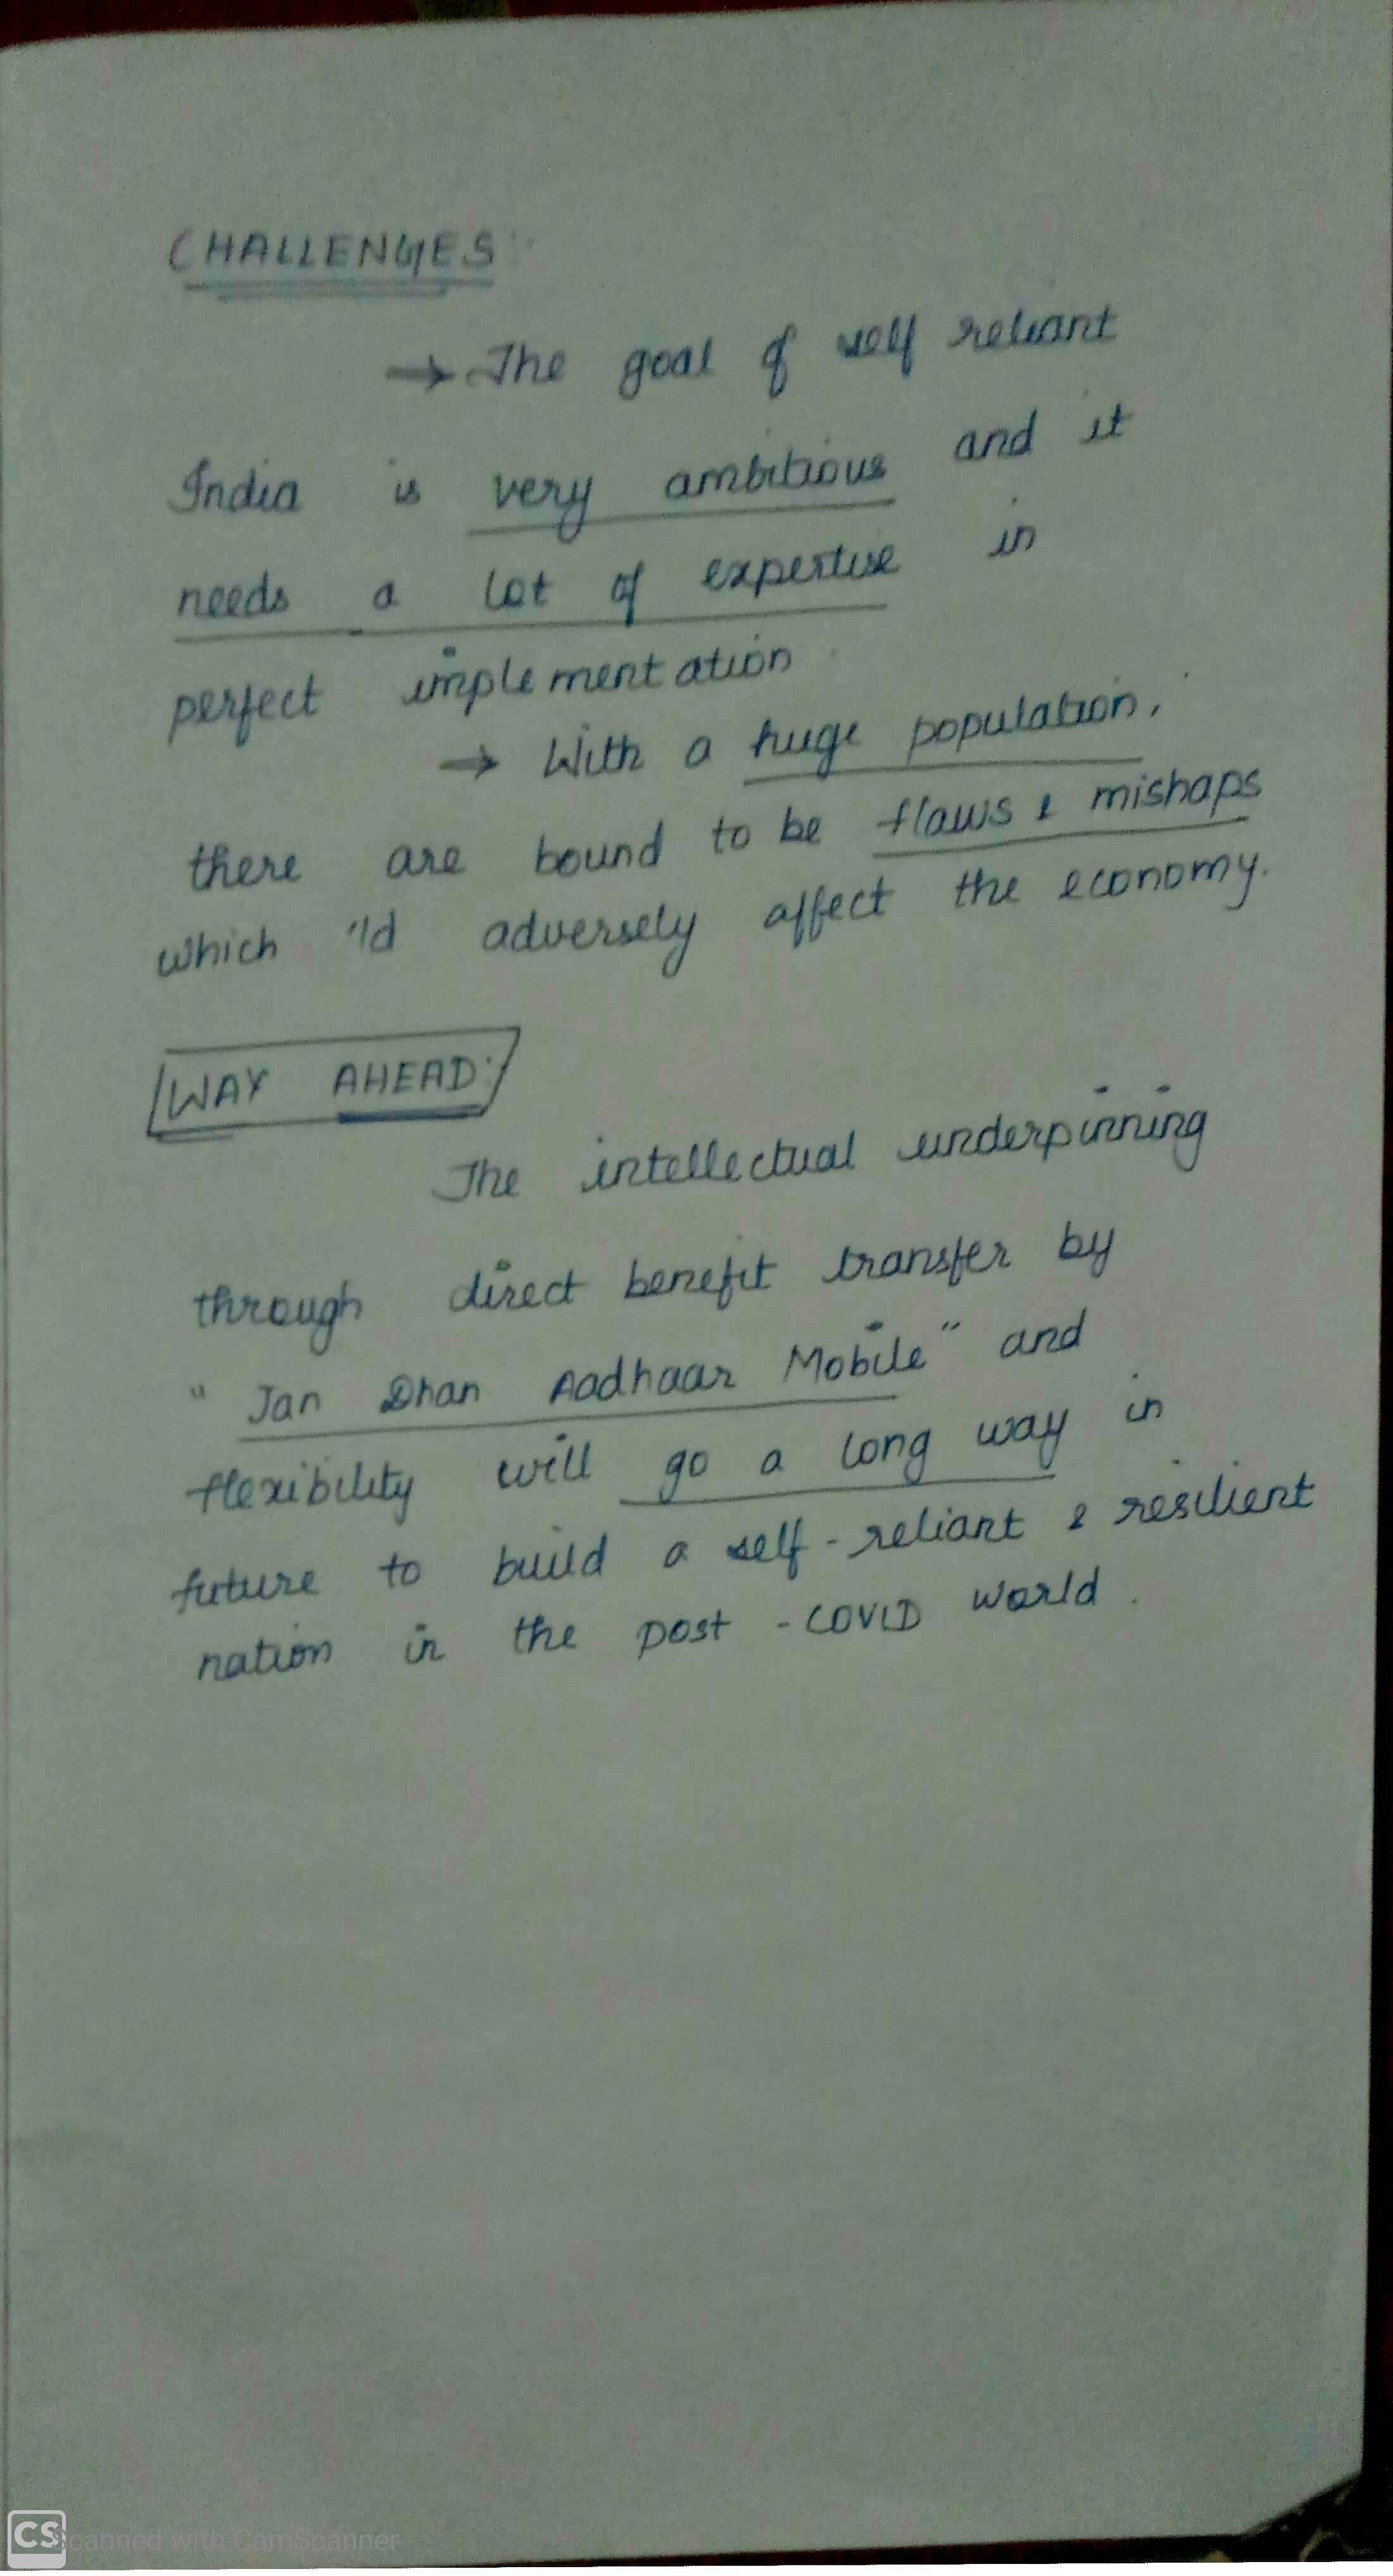 CHALLENGES:
→ The goal of self reliant
India is very ambitious and it
needs a lot of expertise in
perfect implementation
→ With a huge population,
there are bound to be flaws & mishaps
which 'ld adversely affect the economy.
WAY AHEAD:
The intellectual underpinning
through direct benefit transfer by
"Jan Dhan Aadhaar Mobile" and
flexibility will go a long way in
future to build a self-reliant & resilient
nation in the post-COVID world.
CS Scanned with CamScanner